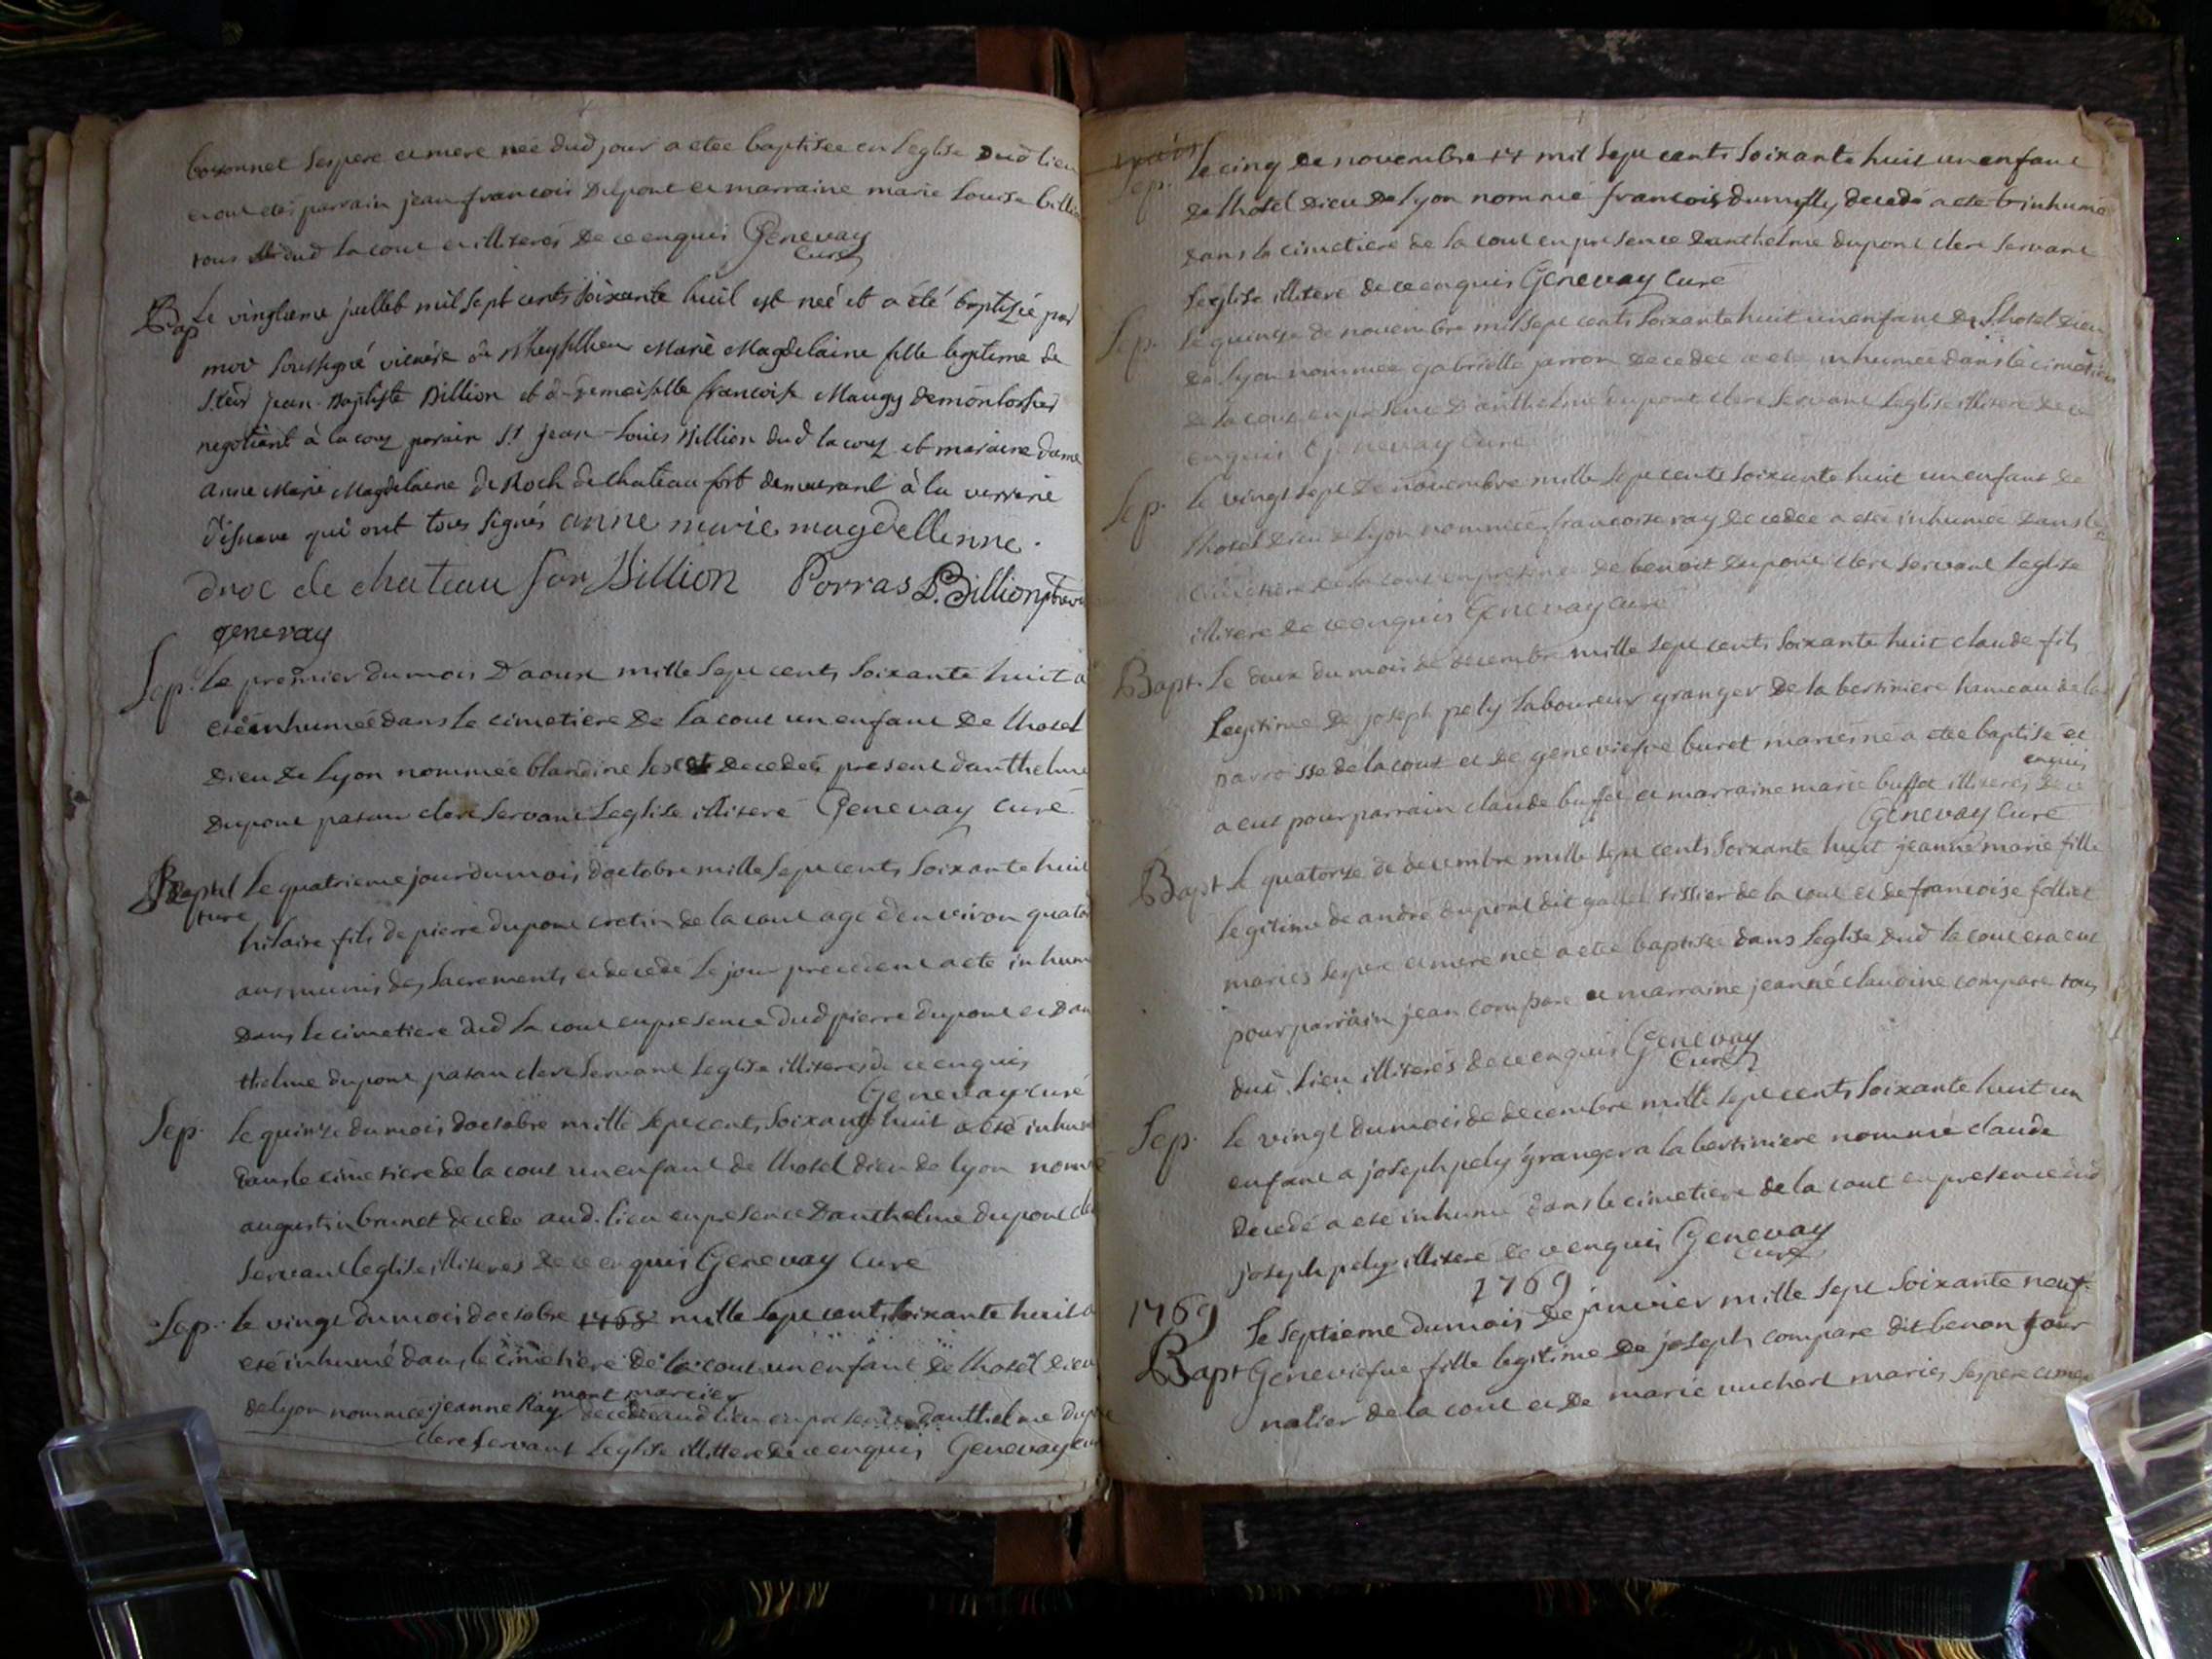 bosonnet ses pere et mere née dud jour a etee baptisee en leglise dud lieu
et ont étés parrain jean francois dupont et marraine marie louise billion
tous dud la cout et illiterés de ce enquis Genevay
curé
Bap
Le vingtieme juillet mil sept cents soixante huit est neé et a été baptizé par
moy soussigné vicaire de Marie Magdelaine fille legitime de
Sieur jean Baptiste Billion et demoiselle francoise Maugy
negotiant à la couz parain Sr jean Louis Billion dud la couz et maraine dame
anne Marie Magdelaine de Roch de chateau fort demeurant à la verrerie
qui ont tous signés anne marie magdellenne
droc de chateau for Billion Porras B. Billion
genevay
Sep. Le premier du mois d'aoust mille sept cents soixante huit a
eté inhumée dans le cimetiere de la cout un enfant de lhotel
dieu de Lyon nommée blandine decedeé present danthelme
dupont paisan clerc servant leglise illiteré Genevay curé
Le quatrieme jour du mois doctobre mille sept cents soixante huit
hilaire fils de pierre dupont cretin de la cout agé denviron quator
ans munis des sacrements et decedé le jour precedent a eté inhumé
dans le cimetiere dud la cout en presence dud pierre dupont et dan
thelme dupont paisan clerc servant leglise illiterés de ce enquis
Genevay curé
Sep. Le quinze du mois doctobre mille sept cents soixante huit a eté inhumé
dans le cimetiere de la cout un enfant de lhotel dieu de lyon nommé
augustin brunet decedé aud. lieu en presence danthelme dupont clerc
servant leglise illiteres de ce enquis Genevay curé
Sep. Le vingt du mois doctobre 1768 mille sept cents soixante huit a
eté inhumé dans le cimetiere de la cout un enfant de lhotel dieu
mont marcier
de lyon nommée jeanne Ray decedée aud lieu en presence danthelme dupont
clerc servant leglise illitteré de ce enquis Genevay curé
Sep. Le cinq de novembre mil sept cents soixante huit un enfant
de lhotel dieu de lyon nommé francois decedé a eté inhumé
dans la cimetiere de la cout en presence danthelme dupont clerc servant
leglise illiteré de ce enquis Genevay curé
Sep. Le quinze de novembre mil sept cents soixante huit un enfant de lhotel dieu
de lyon nommée gabrielle jarron decedée a eté inhumée dans le cimetiere
de la cout en presence danthelme dupont clerc servant leglise illiteré de ce
enquis Genevay curé
Sep. Le vingt sept de novembre mille sept cents soixante huit un enfant de
lhotel dieu de lyon nommée francoise ray decedée a eté inhumée dans le
cimetiere de la cout en presence de benoit dupont clerc servant leglise
illiteré de ce enquis Genevay curé
Bapt. Le deux du mois de decembre mille sept cents soixante huit claude fils
legitime de joseph pely laboureur granger de la bertiniere hameau de la
parroisse de la cout et de geneviefve buret mariés né a etee baptisé et
enquis
a eut pour parrain claude buffet et marraine marie buffet illiterés de ce
Genevay curé
Bapt Le quatorze de decembre mille sept cents soixante huit jeanne marie fille
legitime de andré dupont dit tissier de la cout et de francoise folliet
mariés ses pere et mere neé a etee baptisée dans leglise dud la cout et a eut
pour parrain jean compare et marraine jeanne claudine compare tous
dud. lieu illiterés de ce enquis Genevay
curé
Sep. Le vingt du mois de decembre mille sept cents soixante huit un
enfant a joseph pely granger a la bertiniere nommé claude
decedé a eté inhumé dans le cimetiere de la cout en presence dud
joseph pely illiteré de ce enquis Genevay
curé
1769
1769
Le septieme du mois de janvier mille sept soixante neuf
Bapt Geneviefve fille legitime de joseph compare dit benon jour
nalier de la cout et de marie vuchert mariés ses pere et mere